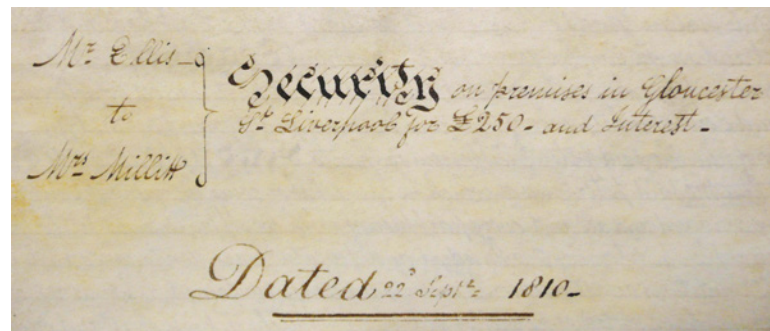 Mr. Ellis
to
Mrs Millitt
Security on premises in Gloucester
St. Liverpool for £250 - and Interest -
Dated 22d Septr. 1810 -